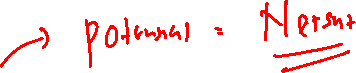 → Potansıal = Nernst